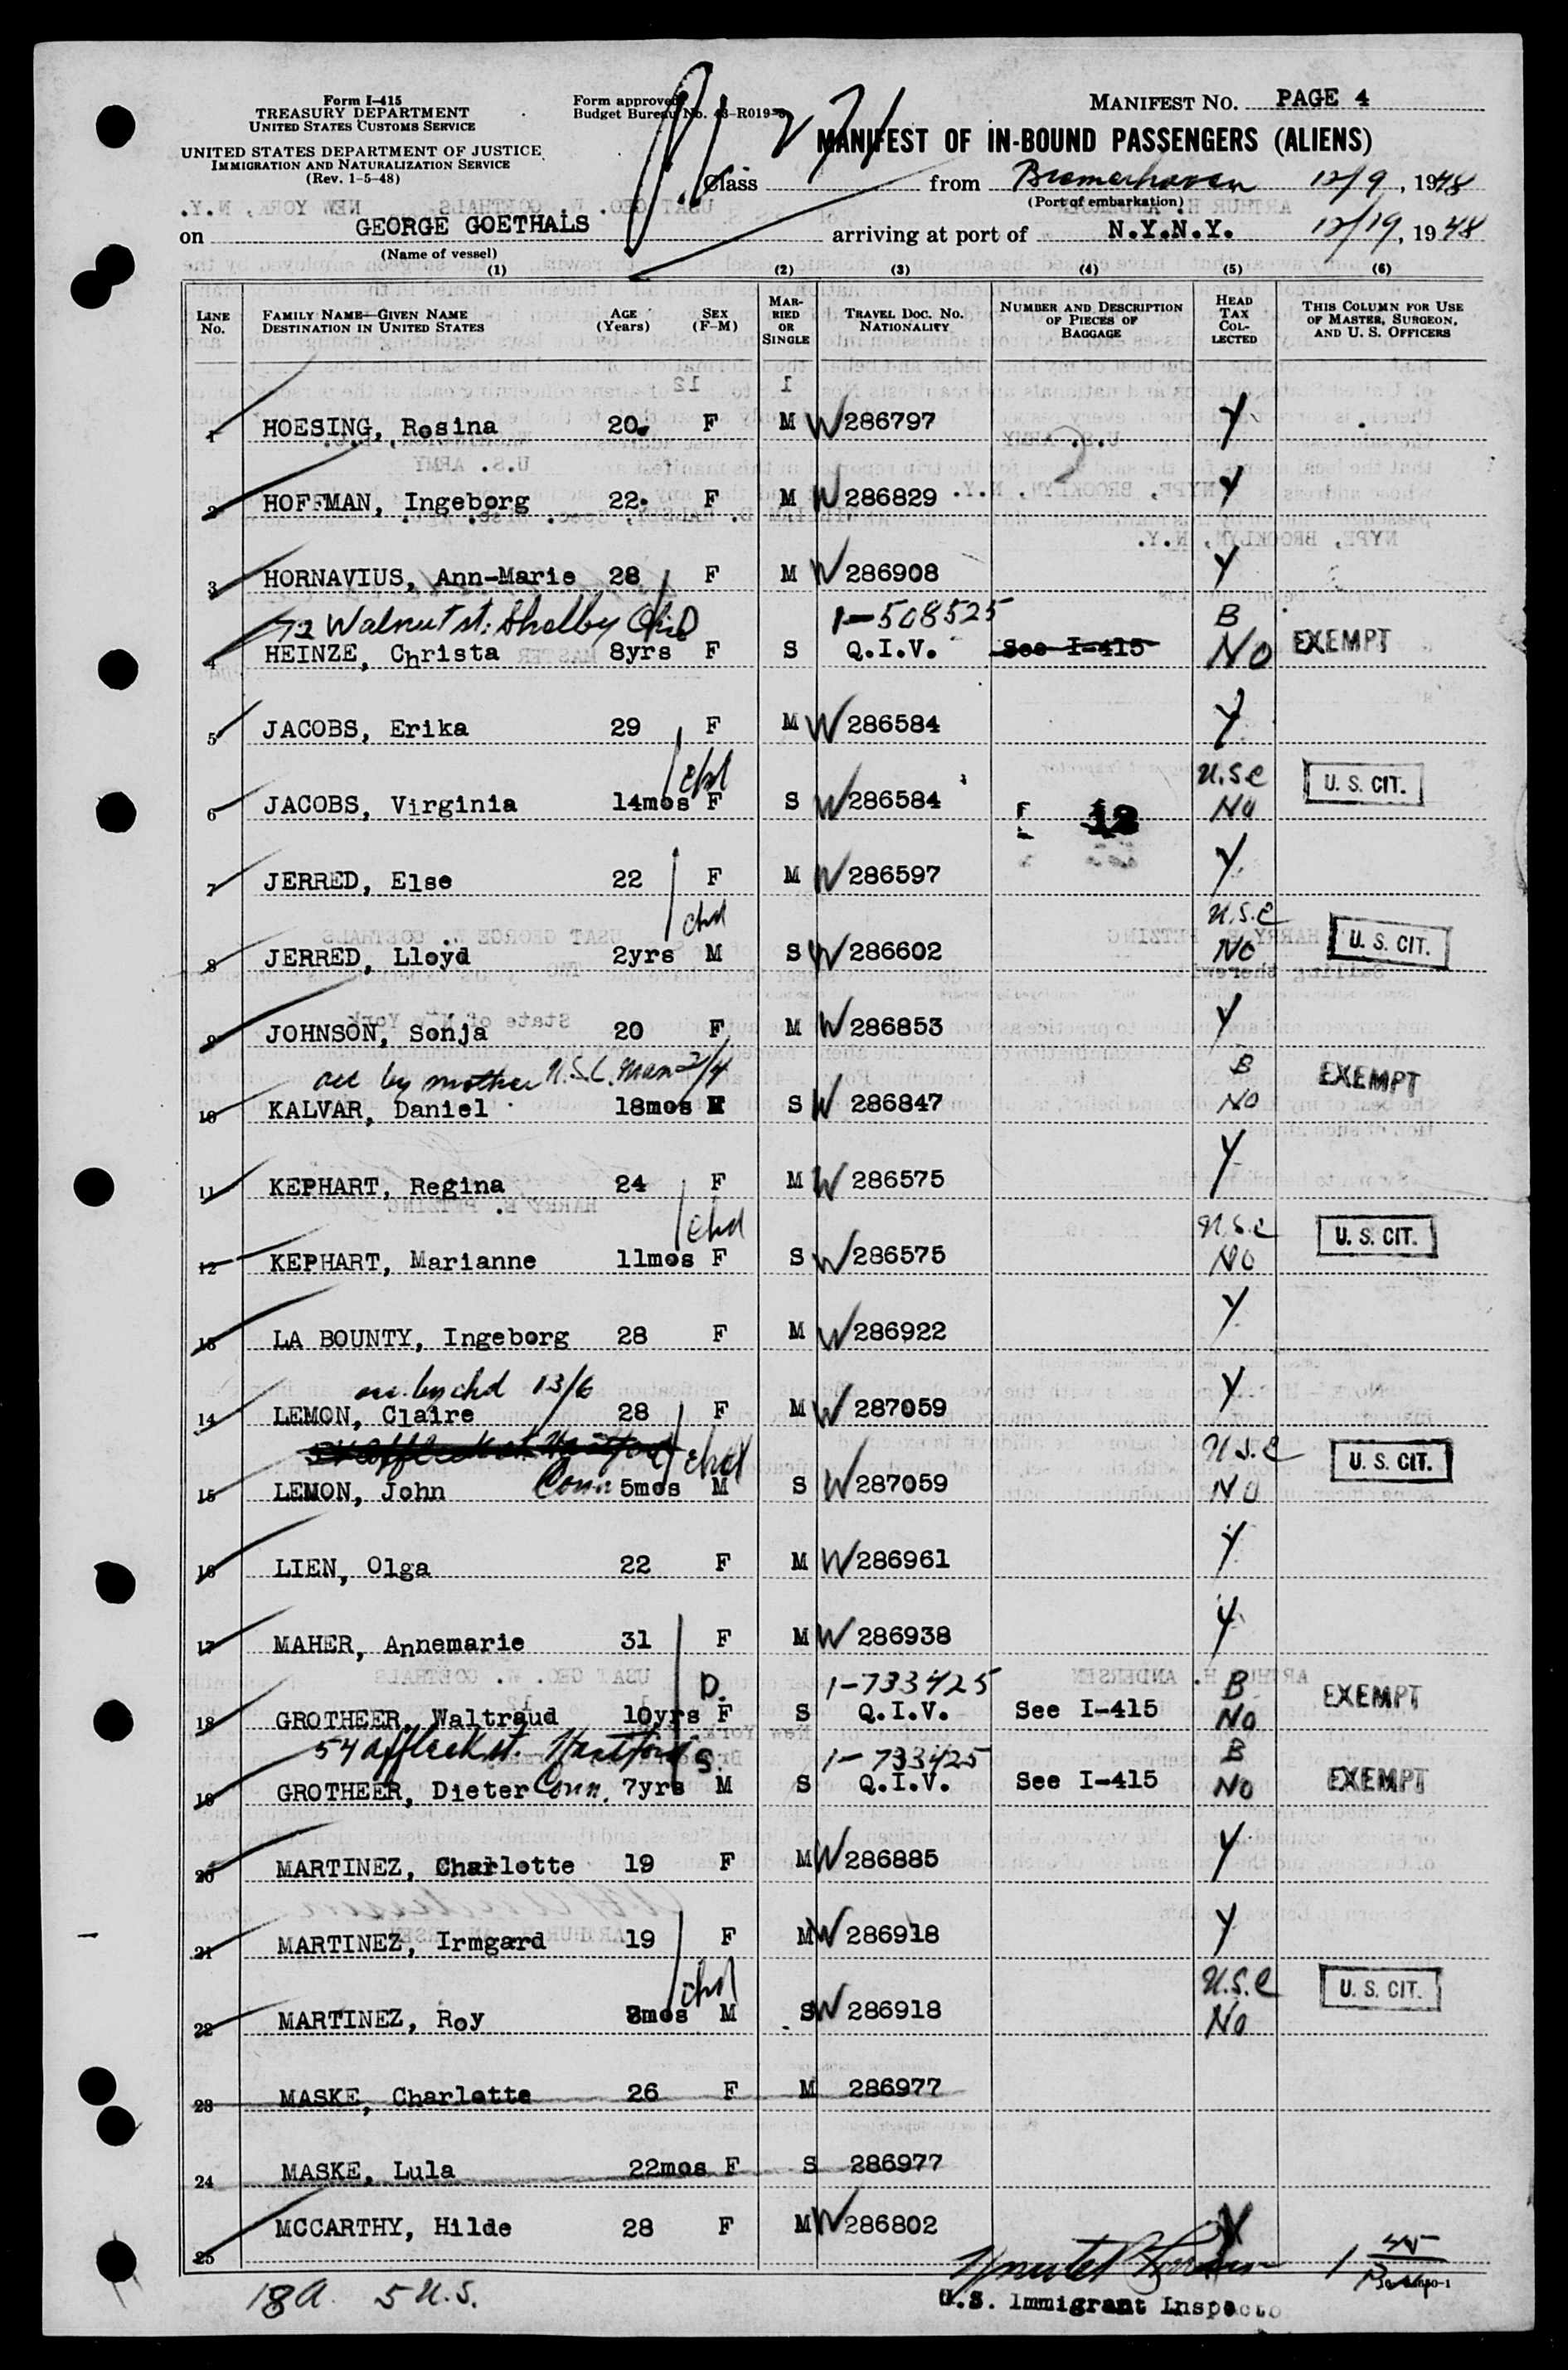 Form I-415
TREASURY DEPARTMENT
UNITED STATES CUSTOMS SERVICE
UNITED STATES DEPARTMENT OF JUSTICE
IMMIGRATION AND NATURALIZATION SERVICE
(Rev. 1-5-48)
Form approved
Budget Bureau No. 43-R019-
MANIFEST NO. PAGE 4
MANIFEST OF IN-BOUND PASSENGERS (ALIENS)
Class from Bremerhaven 12/9, 1948
(Port of embarkation)
on GEORGE GOETHALS arriving at port of N.Y.N.Y. 12/19, 1948
(Name of vessel)
(1) (2) (3) (4) (5) (6)
LINE No. FAMILY NAME—GIVEN NAME DESTINATION IN UNITED STATES AGE (Years) SEX (F-M) MARRIED OR SINGLE TRAVEL DOC. NO. NATIONALITY NUMBER AND DESCRIPTION OF PIECES OF BAGGAGE HEAD TAX COLLECTED THIS COLUMN FOR USE OF MASTER, SURGEON, AND U. S. OFFICERS
1 HOESING, Rosina 20 F M W 286797 Y
2 HOFFMAN, Ingeborg 22 F M W 286829 Y
3 HORNAVIUS, Ann-Marie 28 F M W 286908 Y
72 Walnut st. Shelby Ohio D 1-508525 B
4 HEINZE, Christa 8yrs F S Q.I.V. See I-415 No EXEMPT
5 JACOBS, Erika 29 F M W 286584 Y
chd U.S.C U. S. CIT.
6 JACOBS, Virginia 14mos F S W 286584 12 No
7 JERRED, Else 22 F M W 286597 Y
chd U.S.C
8 JERRED, Lloyd 2yrs M S W 286602 No U. S. CIT.
9 JOHNSON, Sonja 20 F M W 286853 Y
acc by mother U.S.C. Man 2/4 B EXEMPT
10 KALVAR, Daniel 18mos M S W 286847 No
11 KEPHART, Regina 24 F M W 286575 Y
chd U.S.C U. S. CIT.
12 KEPHART, Marianne 11mos F S W 286575 No
13 LA BOUNTY, Ingeborg 28 F M W 286922 Y
acc. by chd 13/6
14 LEMON, Claire 28 F M W 287059 Y
chd U.S.C U. S. CIT.
15 LEMON, John Conn 5mos M S W 287059 No
16 LIEN, Olga 22 F M W 286961 Y
17 MAHER, Annemarie 31 F M W 286938 Y
D. 1-733425 B
18 GROTHEER, Waltraud 10yrs F S Q.I.V. See I-415 No EXEMPT
54 Affleck st. Hartford S. 1-733425 B
19 GROTHEER, Dieter Conn. 7yrs M S Q.I.V. See I-415 No EXEMPT
20 MARTINEZ, Charlotte 19 F M W 286885 Y
21 MARTINEZ, Irmgard 19 F M W 286918 Y
chd U.S.C U. S. CIT.
22 MARTINEZ, Roy 8mos M S W 286918 No
23 MASKE, Charlotte 26 F M 286977
24 MASKE, Lula 22mos F S 286977
25 MCCARTHY, Hilde 28 F M W 286802 Y
18A. 5 U.S.
U.S. Immigrant Inspecto